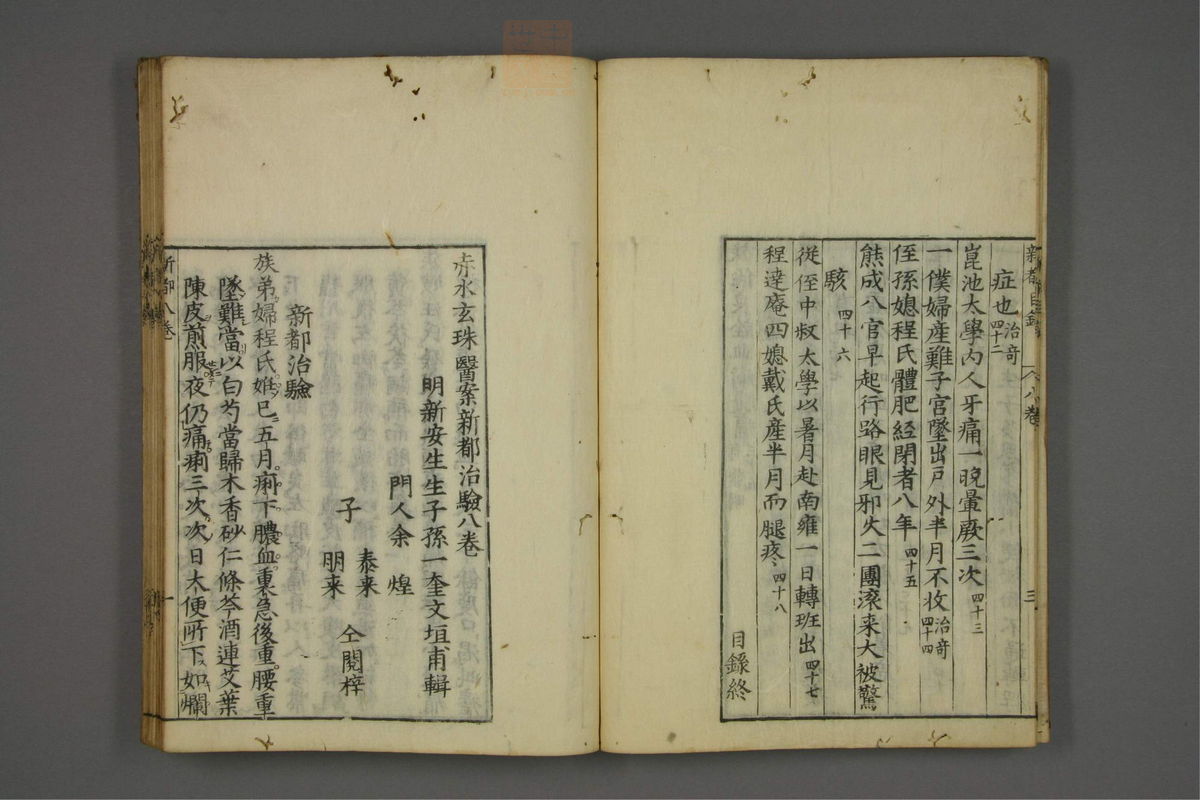 新都目録　八卷　三
症也 治奇 四十二
崑池太學内人牙痛一晚暈厥三次 四十三
一僕婦產難子宮墜出戶外半月不收 治奇 四十四
侄孫媳程氏體肥經閉者八年 四十五
熊成八官早起行路眼見邪火二團滾来大被驚
駭 四十六
從侄中叔太學以暑月赴南雍一日轉班出 四十七
程達庵四媳戴氏產半月而腿疼 四十八
目錄終
赤水玄珠醫案新都治驗八卷
明新安生生子孫一奎文垣甫輯
門人余煌
子 泰来 朋来 仝閱梓
新都治驗
族弟婦程氏娠已五月痢下膿血裏急後重腰重
墜難當以白芍當歸木香砂仁條芩酒連艾葉
陳皮煎服夜仍痛痢三次次日大便所下如爛
新都八卷 一